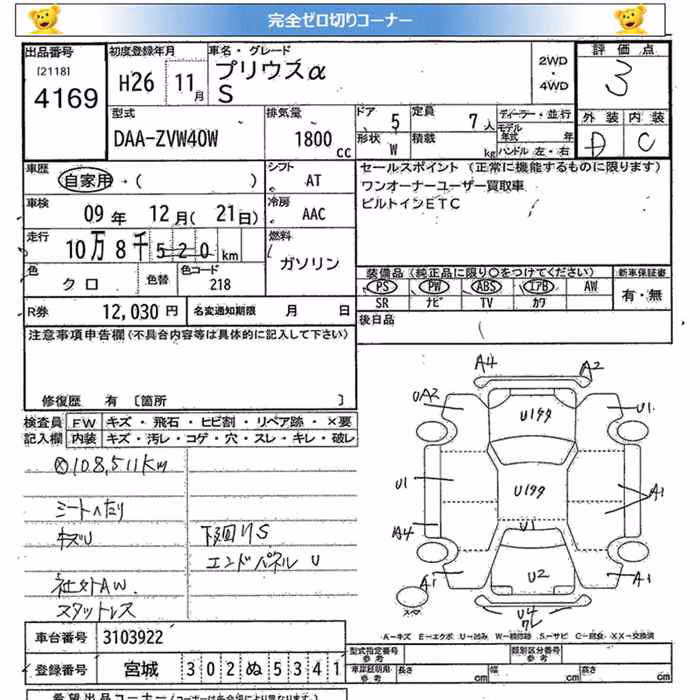 完全ゼロ切りコーナー
出品番号
[2118]
4169
初度登録年月
H26 11月
車名・グレード
プリウスα
S
2WD
・
4WD
評価点
3
外装 内装
D C
型式
DAA-ZVW40W
排気量
1800cc
ドア 5
形状 W
定員 7人
積載 kg
ディーラー・並行
モデル年式 年
ハンドル 左・右
車歴
自家用・( )
シフト
AT
車検
09年 12月( 21日)
冷房
AAC
走行
10万8千520km
燃料
ガソリン
色
クロ
色替
色コード
218
R券 12,030円
名変通知期限 月 日
セールスポイント (正常に機能するものに限ります)
ワンオーナーユーザー買取車
ビルトインETC
装備品(純正品に限り○をつけてください)
新車保証書
PS PW ABS エアB AW
SR ナビ TV カワ
有・無
後日品
(
注意事項申告欄(不具合内容等は具体的に記入して下さい)
修復歴 有〔箇所 〕
検査員記入欄
FW キズ・飛石・ヒビ割・リペア跡・×要
内装 キズ・汚レ・コゲ・穴・スレ・キレ・破レ
108,511km
シートヘたり
キズU
社外AW
スタットレス
下回りS
エンドパネル U
A4 A2
UA2 U1
Uタタ
U1 Uタタ A1
A4 U1
A1 U2 A1
スペア
U4
A-キズ E-エクボ U-凹み W-補修跡 S-サビ C-腐食 XX-交換済
車台番号 3103922
登録番号 宮城 302 ぬ 5341
型式指定番号
参考
類別区分番号
参考
車庫証明用
参考
長さ cm 幅 cm 高さ cm
希望出品コーナー(コーナーは各会場により異なります)